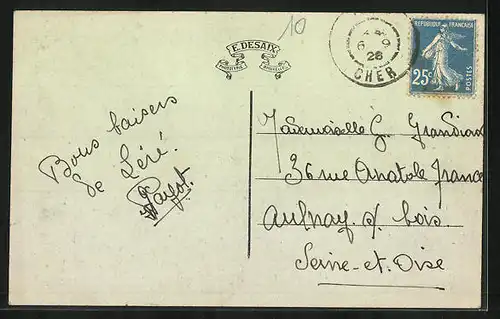 10
E. DESAIX
6
26
CHER
REPUBLIQUE FRANÇAISE
25c
POSTES
Bons baisers
de Léré.
Mademoiselle G.
36 rue Anatole France
Aulnay s/ bois
Seine-et-Oise